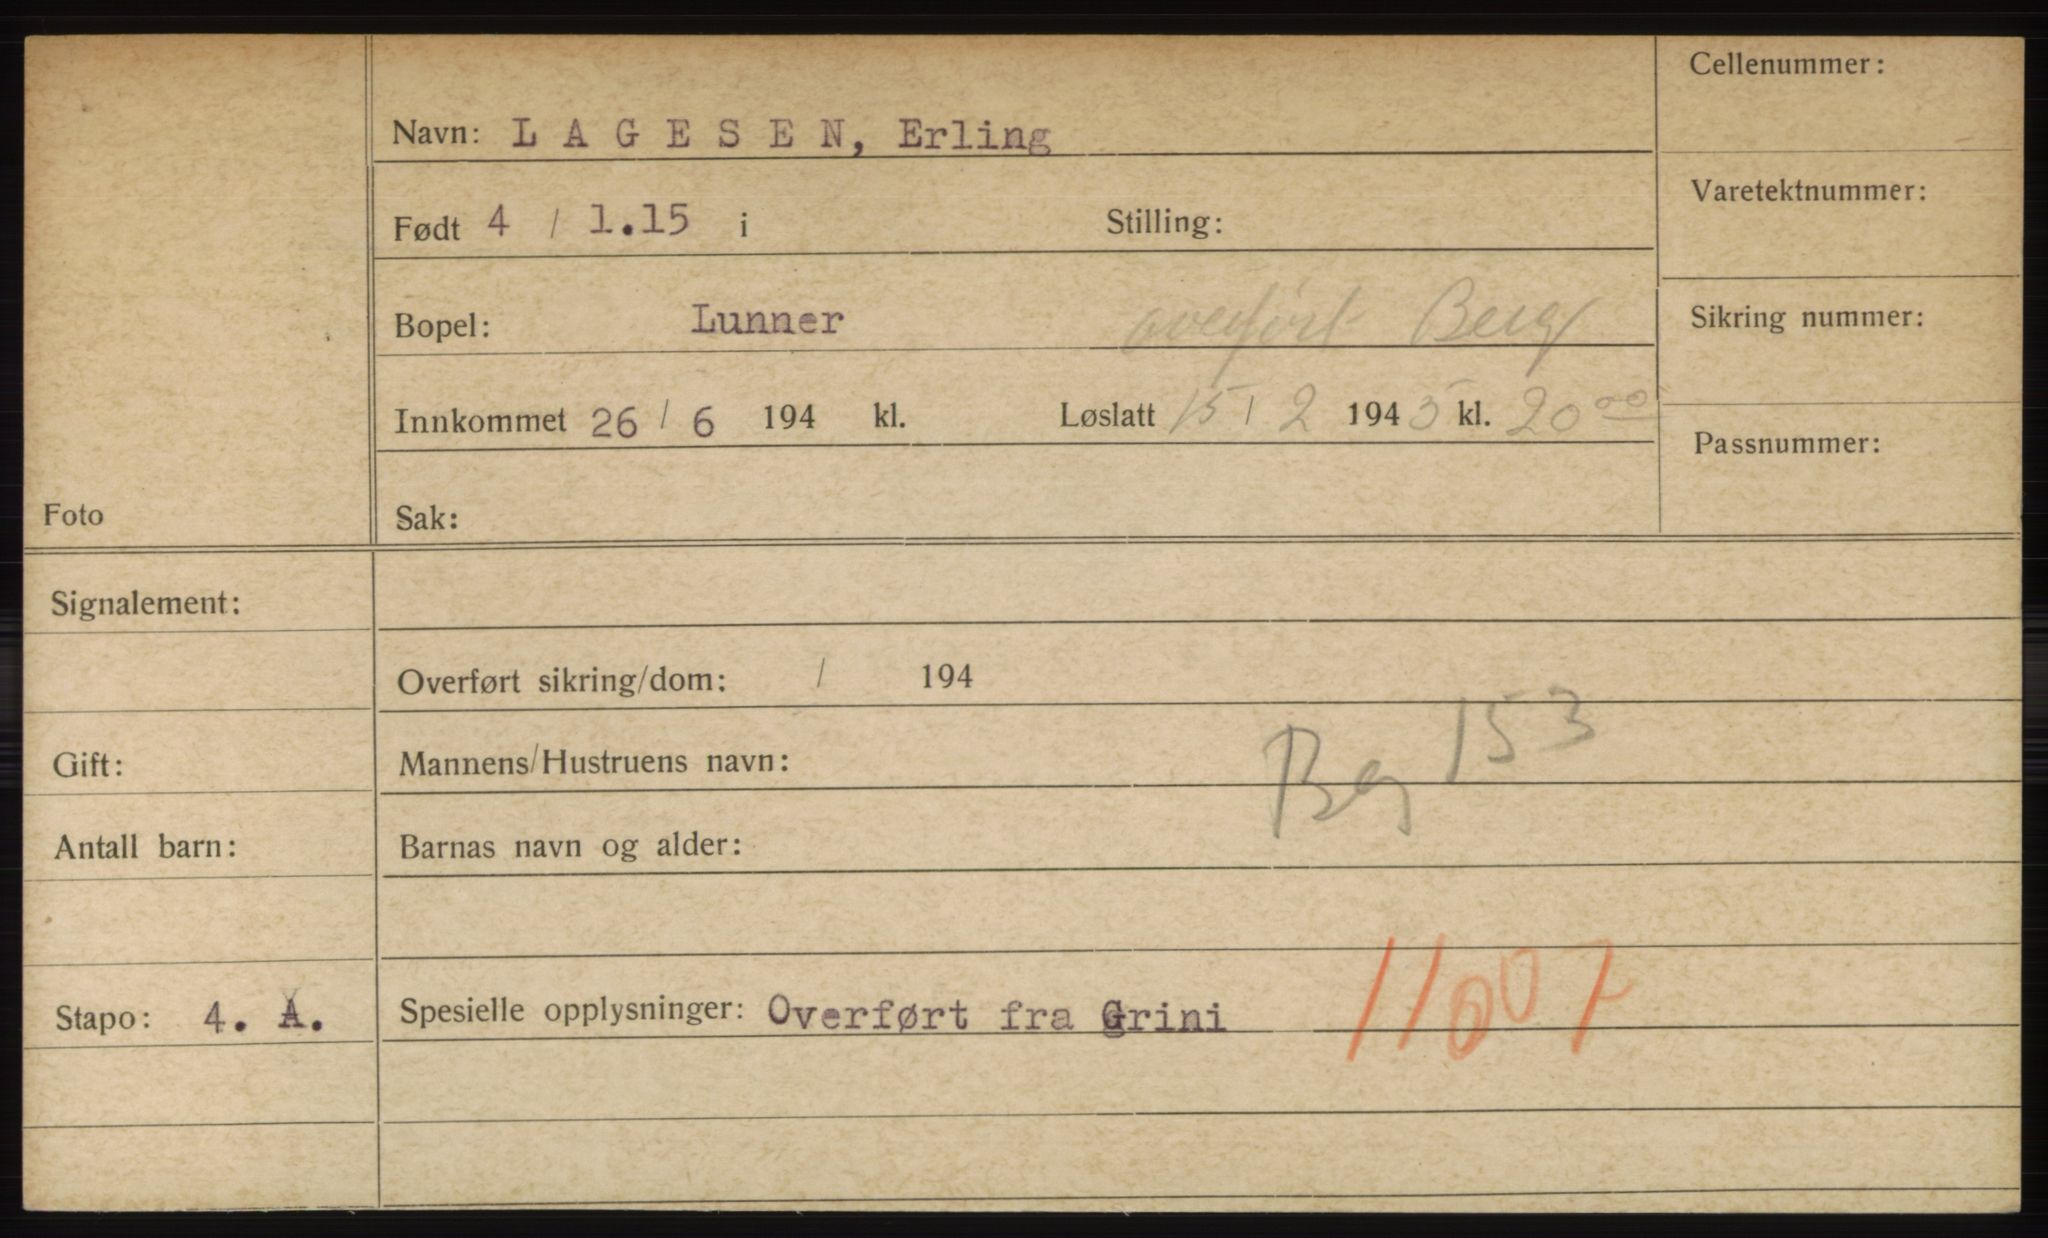 Cellenummer:
Navn: L A G E S E N, Erling
Varetektnummer:
Født 4 / 1.15 i Stilling:
Sikring nummer:
Bopel: Lunner overført Berg
Innkommet 26 / 6 194 kl. Løslatt 15 / 2 1945 kl. 20 00
Passnummer:
Foto
Sak:
Signalement:
Overført sikring/dom: / 194
Bg 153
Gift:
Mannens/Hustruens navn:
Antall barn:
Barnas navn og alder:
Stapo: 4. A.
Spesielle opplysninger: Overført fra Grini 11007